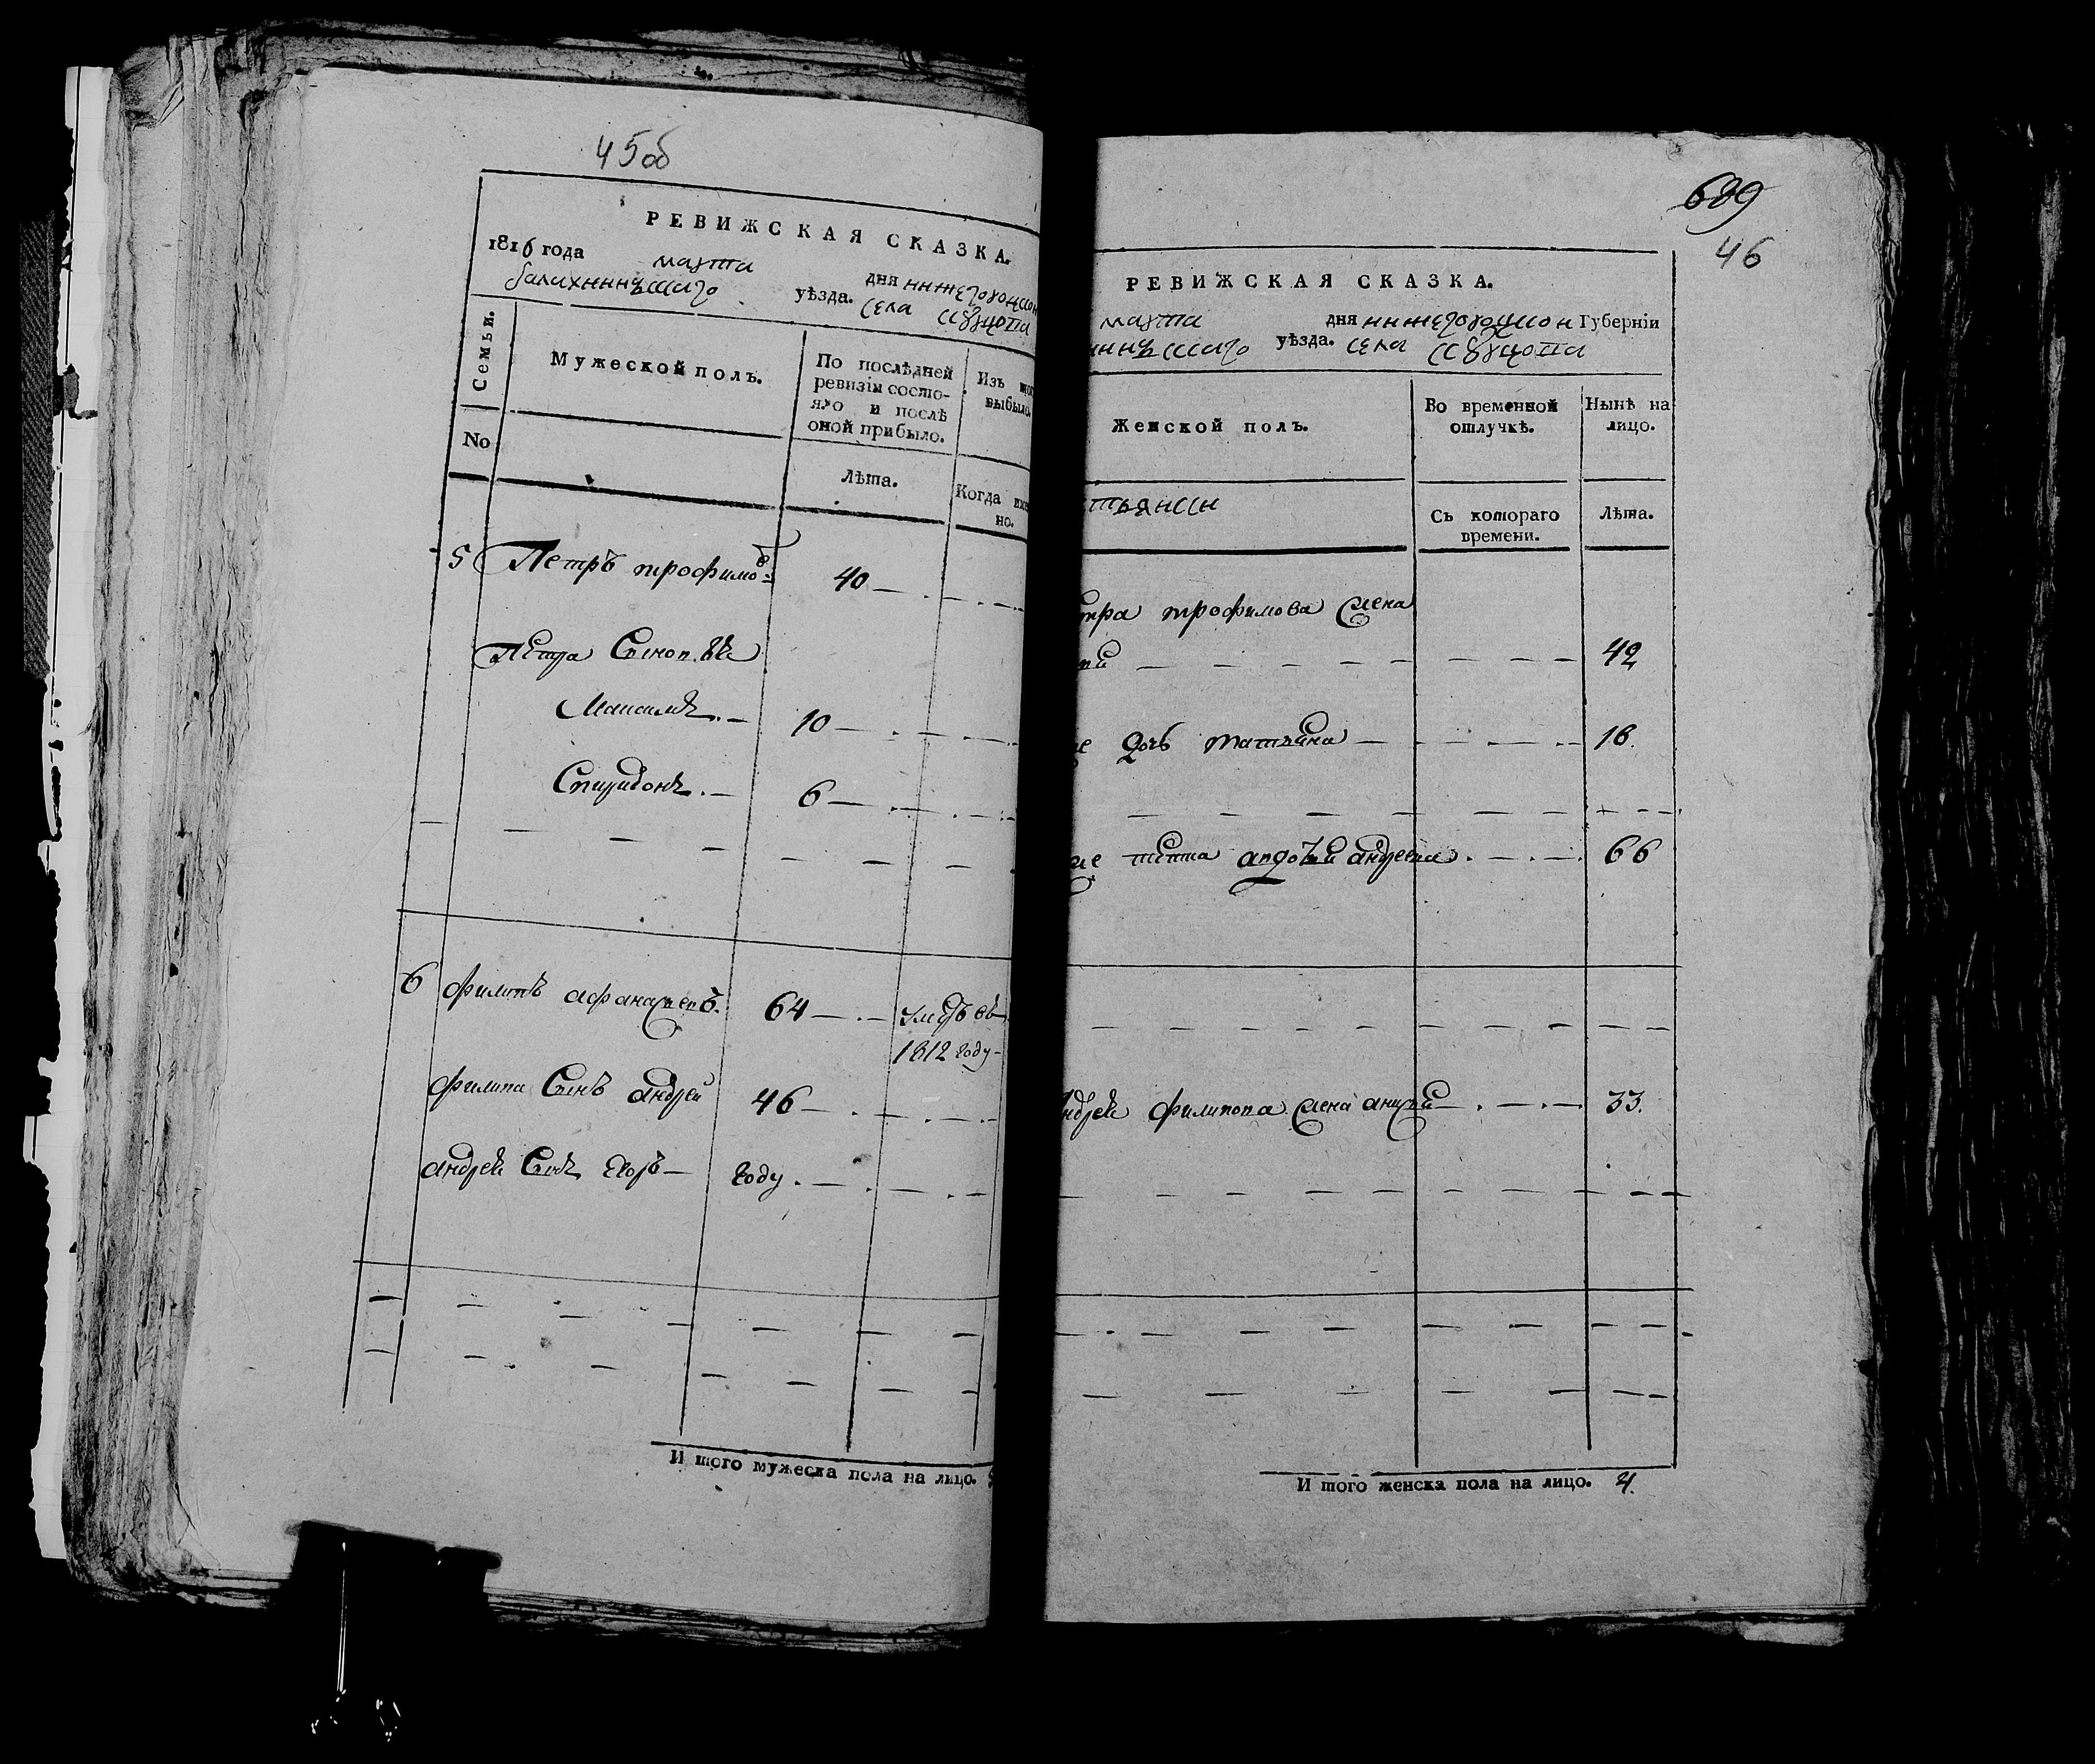 45об
РЕВИЖСКАЯ СКАЗКА.
1816 года марта дня нижегороцкои
балахнинъскаго уѣзда. села
Семьи.
Мужеской полъ.
По послѣдней
ревизіи состо-
яло и послѣ
оной прибыло.
Изъ
выбыло.
No
Лѣта.
Когда
но.
5 Петръ трофимовъ 40
Петра Сыновья
Максимъ 10
Спиридонъ 6
6 филипъ афанасьевъ. 64 умеръ въ
1812 году
филипа Сынъ андрей 46
андрея Сынъ егоръ году
И того мужеска пола на лицо.
689
46
РЕВИЖСКАЯ СКАЗКА.
марта дня нижегороцкои Губерніи
уѣзда. села
Женской полъ.
Во временной
отлучкѣ.
Нынѣ на
лицо.
Съ котораго
времени.
Лѣта.
трофимова жена
42
дочь татьяна 16.
андреева 66
андрея филипова жена 33.
И того женска пола на лицо. 4.